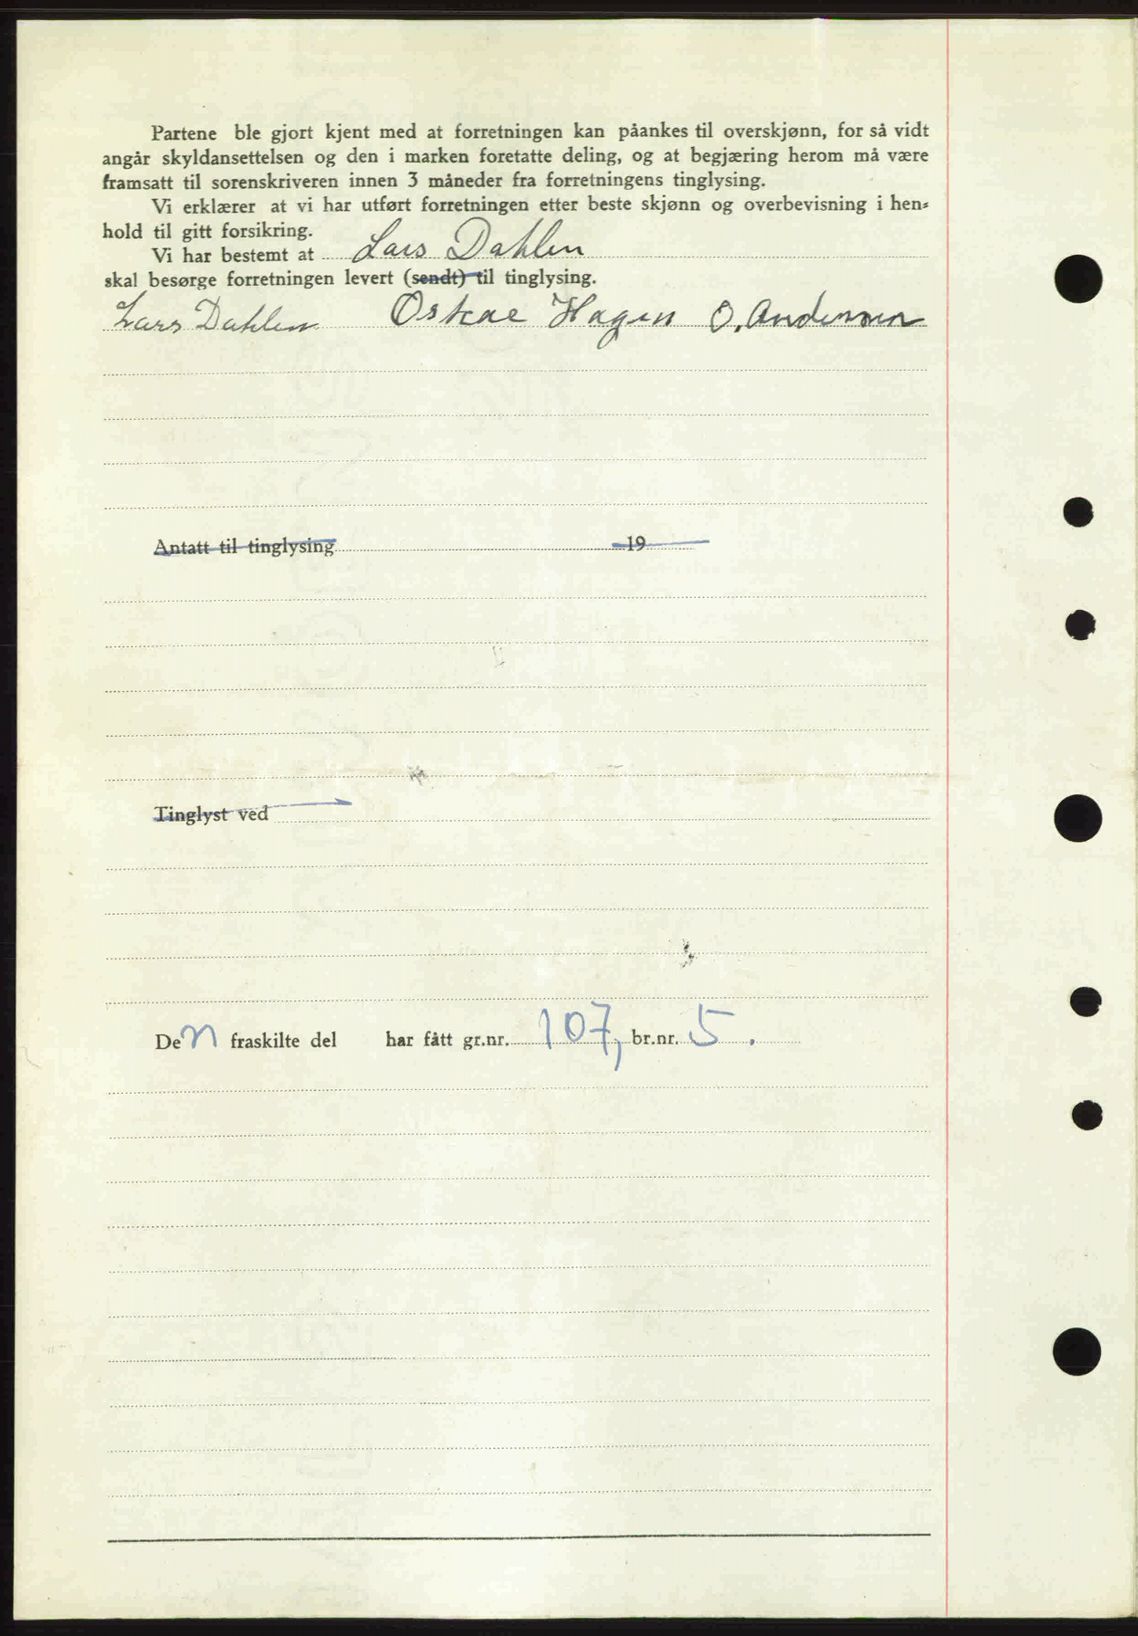 Partene ble gjort kjent med at forretningen kan påankes til overskjønn, for så vidt
angår skyldansettelsen og den i marken foretatte deling, og at begjæring herom må være
framsatt til sorenskriveren innen 3 måneder fra forretningens tinglysing.
Vi erklærer at vi har utført forretningen etter beste skjønn og overbevisning i hen-
hold til gitt forsikring.
Vi har bestemt at Lars Dahlen
skal besørge forretningen levert (sendt) til tinglysing.
Lars Dahlen Oskar Hagen O. Andersen
Antatt til tinglysing 19
Tinglyst ved
Den fraskilte del har fått gr.nr. 107, br.nr. 5.